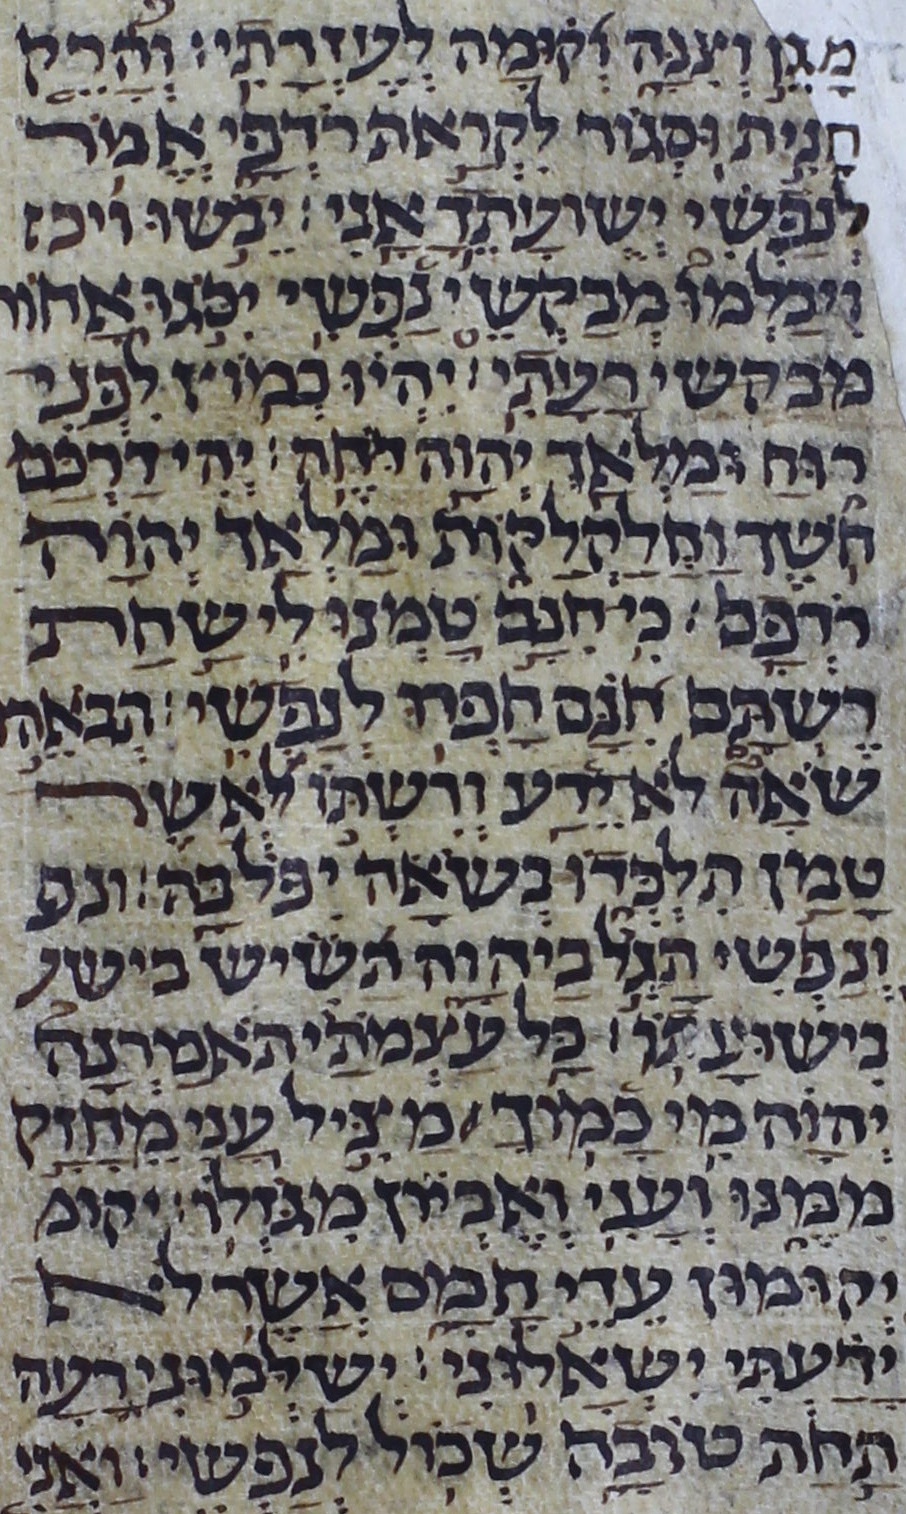 מָגֵן וְצִנָּה וְקוּמָה לְעֶזְרָתִי׃ וְהָרֵק
חֲנִית וּסְגוֹר לִקְרַאת רֹדְפָי אֱמֹר
לְנַפְשִׁי יְשׁוּעָתֵךְ אָנִי׃ יֵבֹשׁוּ ויכ
וְיִכָּלְמוּ מְבַקְשֵׁי נַפְשִׁי יִסֹּגוּ אָחוֹר
מבקשי רָעָתִי׃ יִהְיוּ כְּמוֹץ לִפְנֵי
רוּחַ וּמַלְאַךְ יְהוָה דֹּחֶה׃ יְהִי דַרְכָּם
חֹשֶׁךְ וַחֲלַקְלַקּוֹת וּמַלְאַךְ יְהוָה
רֹדְפָם׃ כִּי חִנָּם טָמְנוּ לִי שַׁחַת
רִשְׁתָּם חִנָּם חָפְרוּ לְנַפְשִׁי׃ תְּבֹאֵהוּ
שֹׁאָה לֹא יֵדָע וְרִשְׁתּוֹ אֲשֶׁר
טָמַן תִּלְכְּדוֹ בְּשֹׁאָה יִפָּל בָּהּ׃ ונפ
וְנַפְשִׁי תָּגִל בַּיהוָה תָּשִׂישׂ בישע
בִּישׁוּעָתוֹ׃ כָּל עַצְמֹתַי תֹּאמַרְנָה
יְהוָה מִי כָמוֹךָ מציל עָנִי מֵחָזָק
מִמֶּנּוּ וְעָנִי וְאֶבְיוֹן מִגֹּזְלוֹ׃ יקומ
יְקוּמוּן עֵדֵי חָמָס אֲשֶׁר לֹא
יָדַעְתִּי יִשְׁאָלוּנִי׃ יְשַׁלְּמוּנִי רָעָה
תַּחַת טוֹבָה שְׁכוֹל לְנַפְשִׁי׃ וַאֲנִי